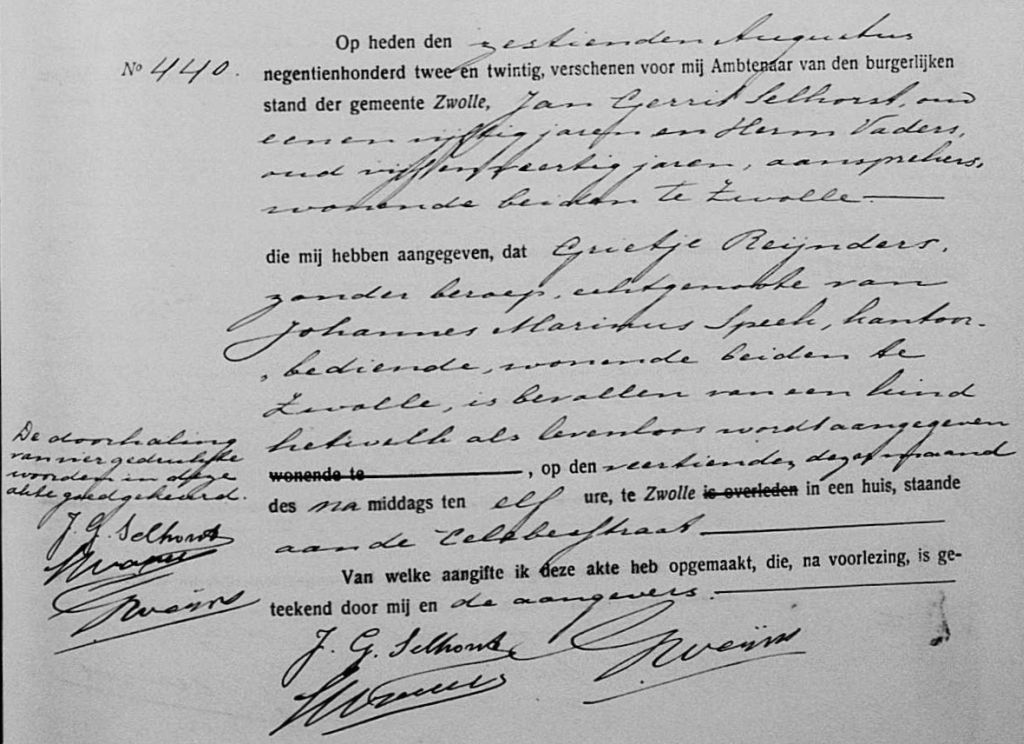 Op heden den zestienden Augustus
No 440.
negentienhonderd twee en twintig, verschenen voor mij Ambtenaar van den burgerlijken
stand der gemeente Zwolle, Jan Gerrit Selhorst, oud
eenen vijftig jaren en Herm Vaders,
oud vijf en veertig jaren, aansprekers,
wonende beiden te Zwolle
die mij hebben aangegeven, dat Grietje Reijnders,
zonder beroep, echtgenoote van
Johannes Marinus Speek, kantoor-
bediende, wonende beiden te
Zwolle, is bevallen van een kind
hetwelk als levenloos wordt aangegeven
wonende te , op den veertienden dezer maand
des na middags ten elf ure, te Zwolle is overleden in een huis, staande
aan de Celebesstraat
Van welke aangifte ik deze akte heb opgemaakt, die, na voorlezing, is ge-
teekend door mij en de aangevers.
J. G. Selhorst
De doorhaling
van vier gedrukte
woorden in deze
akte goedgekeurd.
J. G. Selhorst